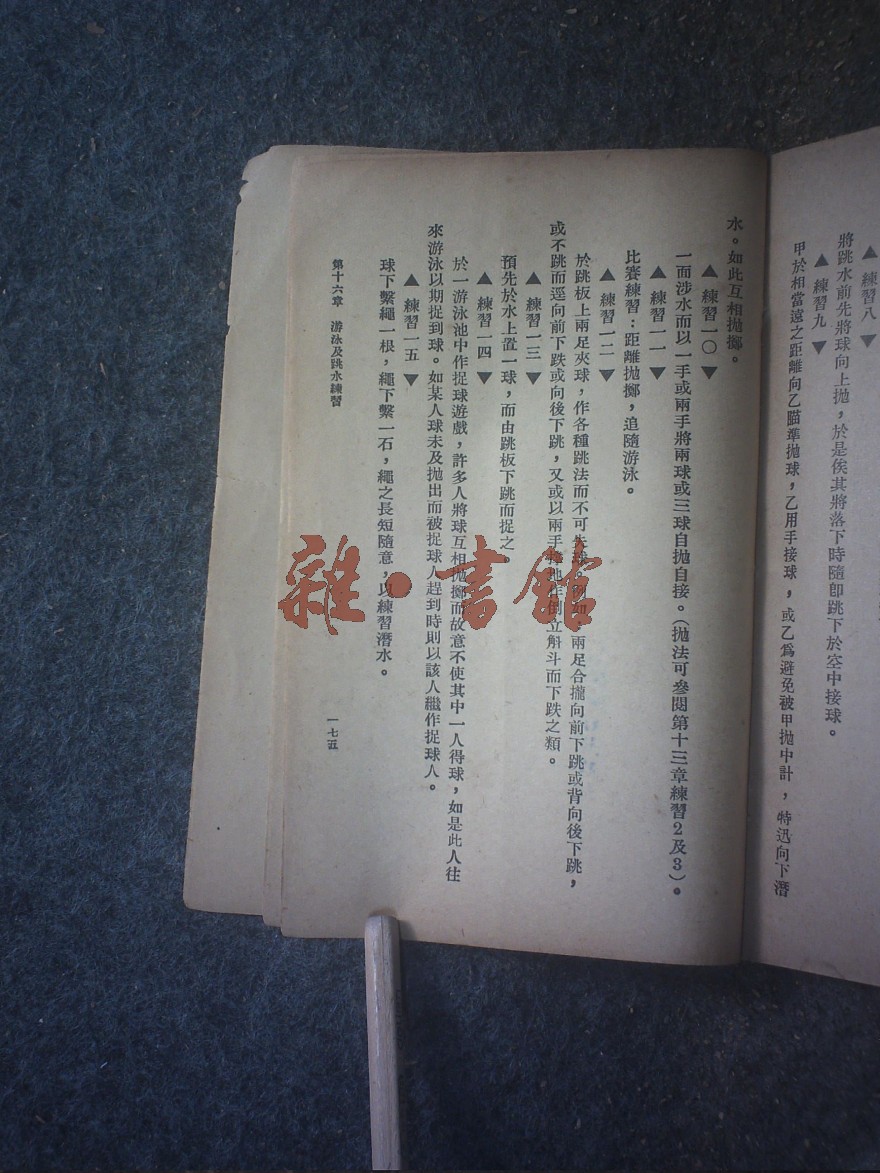 ▲練習八▼
將跳水前先將球向上拋，於是俟其將落下時隨卽跳下於空中接球。
▲練習九▼
甲於相當遠之距離向乙瞄準拋球，乙用手接球，或乙爲避免被甲拋中計，特迅向下潛
水。如此互相拋擲。
▲練習一〇▼
一面涉水而以一手或兩手將兩球或三球自拋自接。（拋法可參閱第十三章練習2及3）。
▲練習一一▼
比賽練習：距離拋擲，追隨游泳。
▲練習一二▼
於跳板上兩足夾球，作各種跳法而不可失球，例如：兩足合攏向前下跳或背向後下跳，
或不跳而逕向前下跌或向後下跳，又或以兩手地作倒立斛斗而下跌之類。
▲練習一三▼
預先於水上置一球，而由跳板下跳而捉之
▲練習一四▼
於一游泳池中作捉球遊戲，許多人將球互相拋擲而故意不使其中一人得球，如是此人往
來游泳以期捉到球。如某人球未及拋出而被捉球人趕到時則以該人繼作捉球人。
▲練習一五▼
球下繫繩一根，繩下繫一石，繩之長短隨意，以練習潛水。
第十六章　游泳及跳水練習
一七五
雜·書館